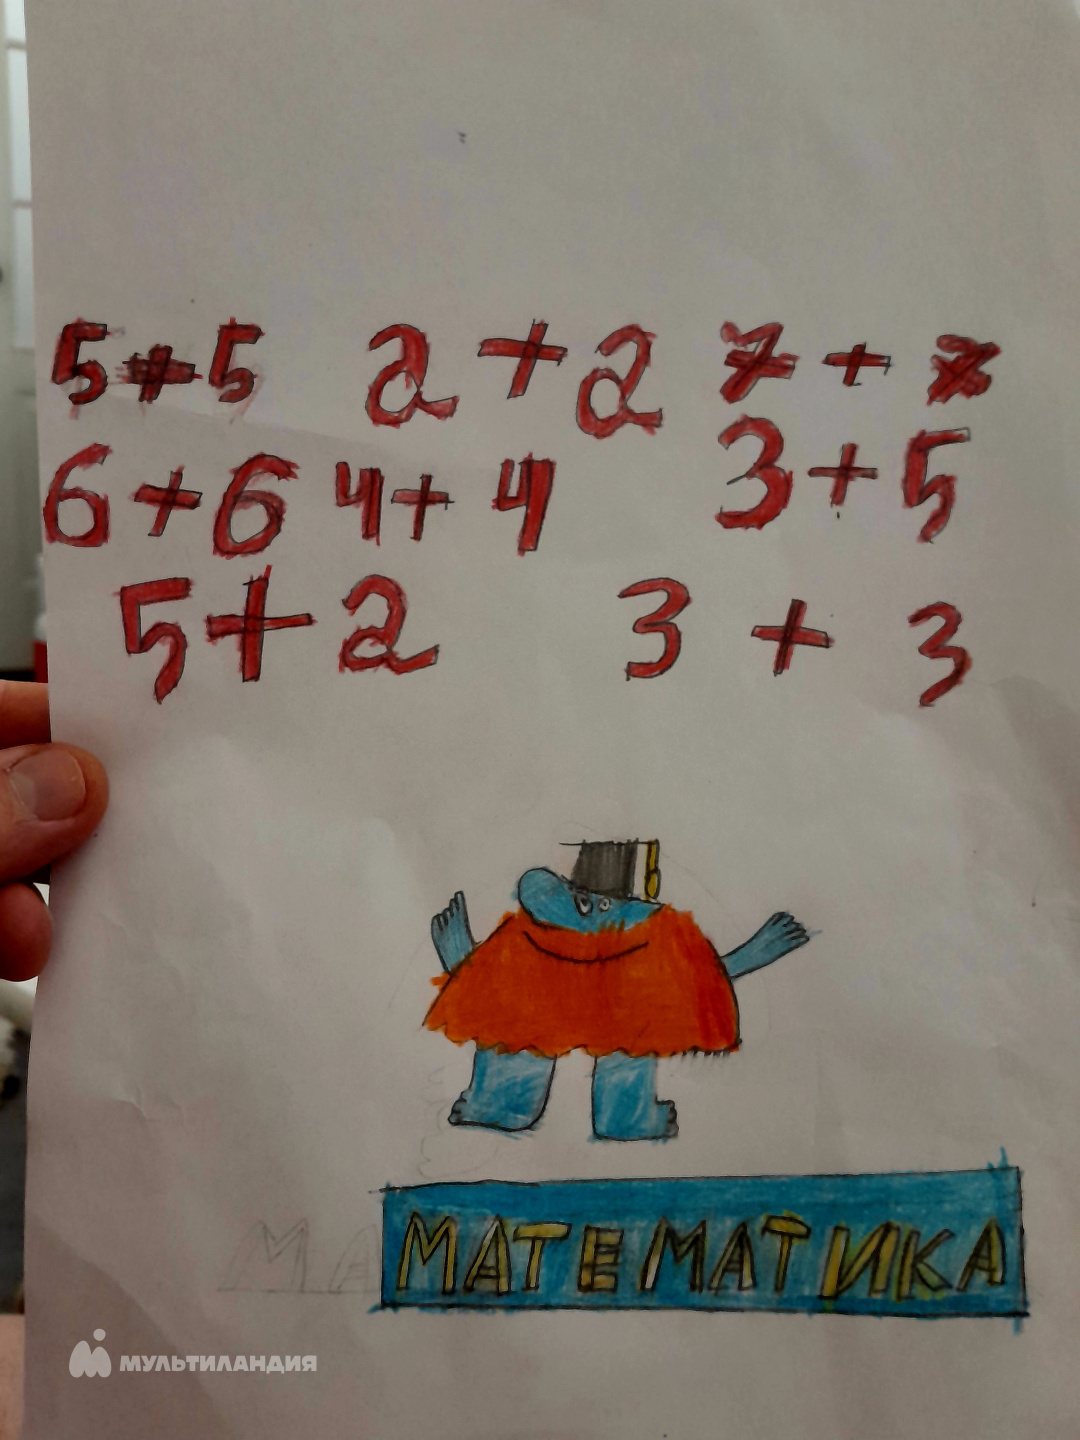 5+5 2+2 7+7
6+6 4+4 3+5
5+2 3+3
МАТЕМАТИКА
МА
МУЛЬТИЛАНДИЯ